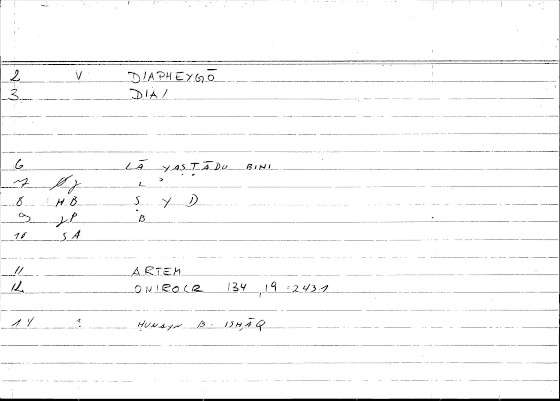 2 V DIAPHEYGŌ
3 DIA/
6 LĀ YAṢṬĀDU BINI
7 L
8 HB Ṣ Y D
9 JP B
10 SA
11 ARTEM
12 ONIROCR 134,19 : 243,1
14 : ḤUNAYN B. ISḤĀQ